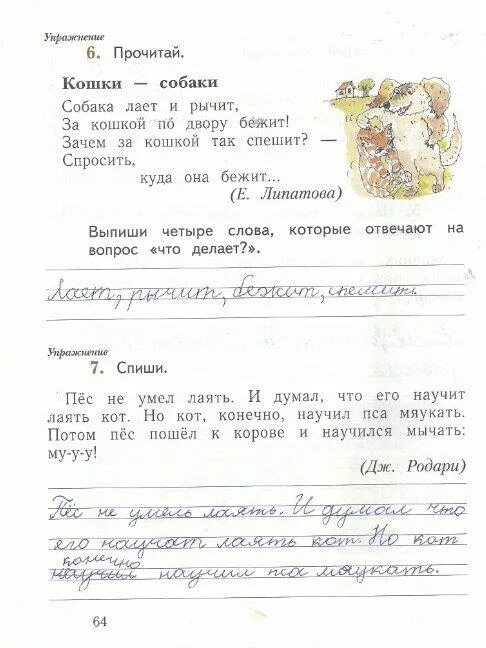 Упражнение
6. Прочитай.
Кошки — собаки
Собака лает и рычит,
За кошкой по двору бежит!
Зачем за кошкой так спешит? —
Спросить,
куда она бежит...
(Е. Липатова)
Выпиши четыре слова, которые отвечают на
вопрос «что делает?».
Лает, рычит, бежит, спешит.
Упражнение
7. Спиши.
Пёс не умел лаять. И думал, что его научит
лаять кот. Но кот, конечно, научил пса мяукать.
Потом пёс пошёл к корове и научился мычать:
му-у-у!
(Дж. Родари)
Пёс не умель лаять. И думал что
его научат лаять кот. Но кот
конечно
научил научил пса мяукать.
64